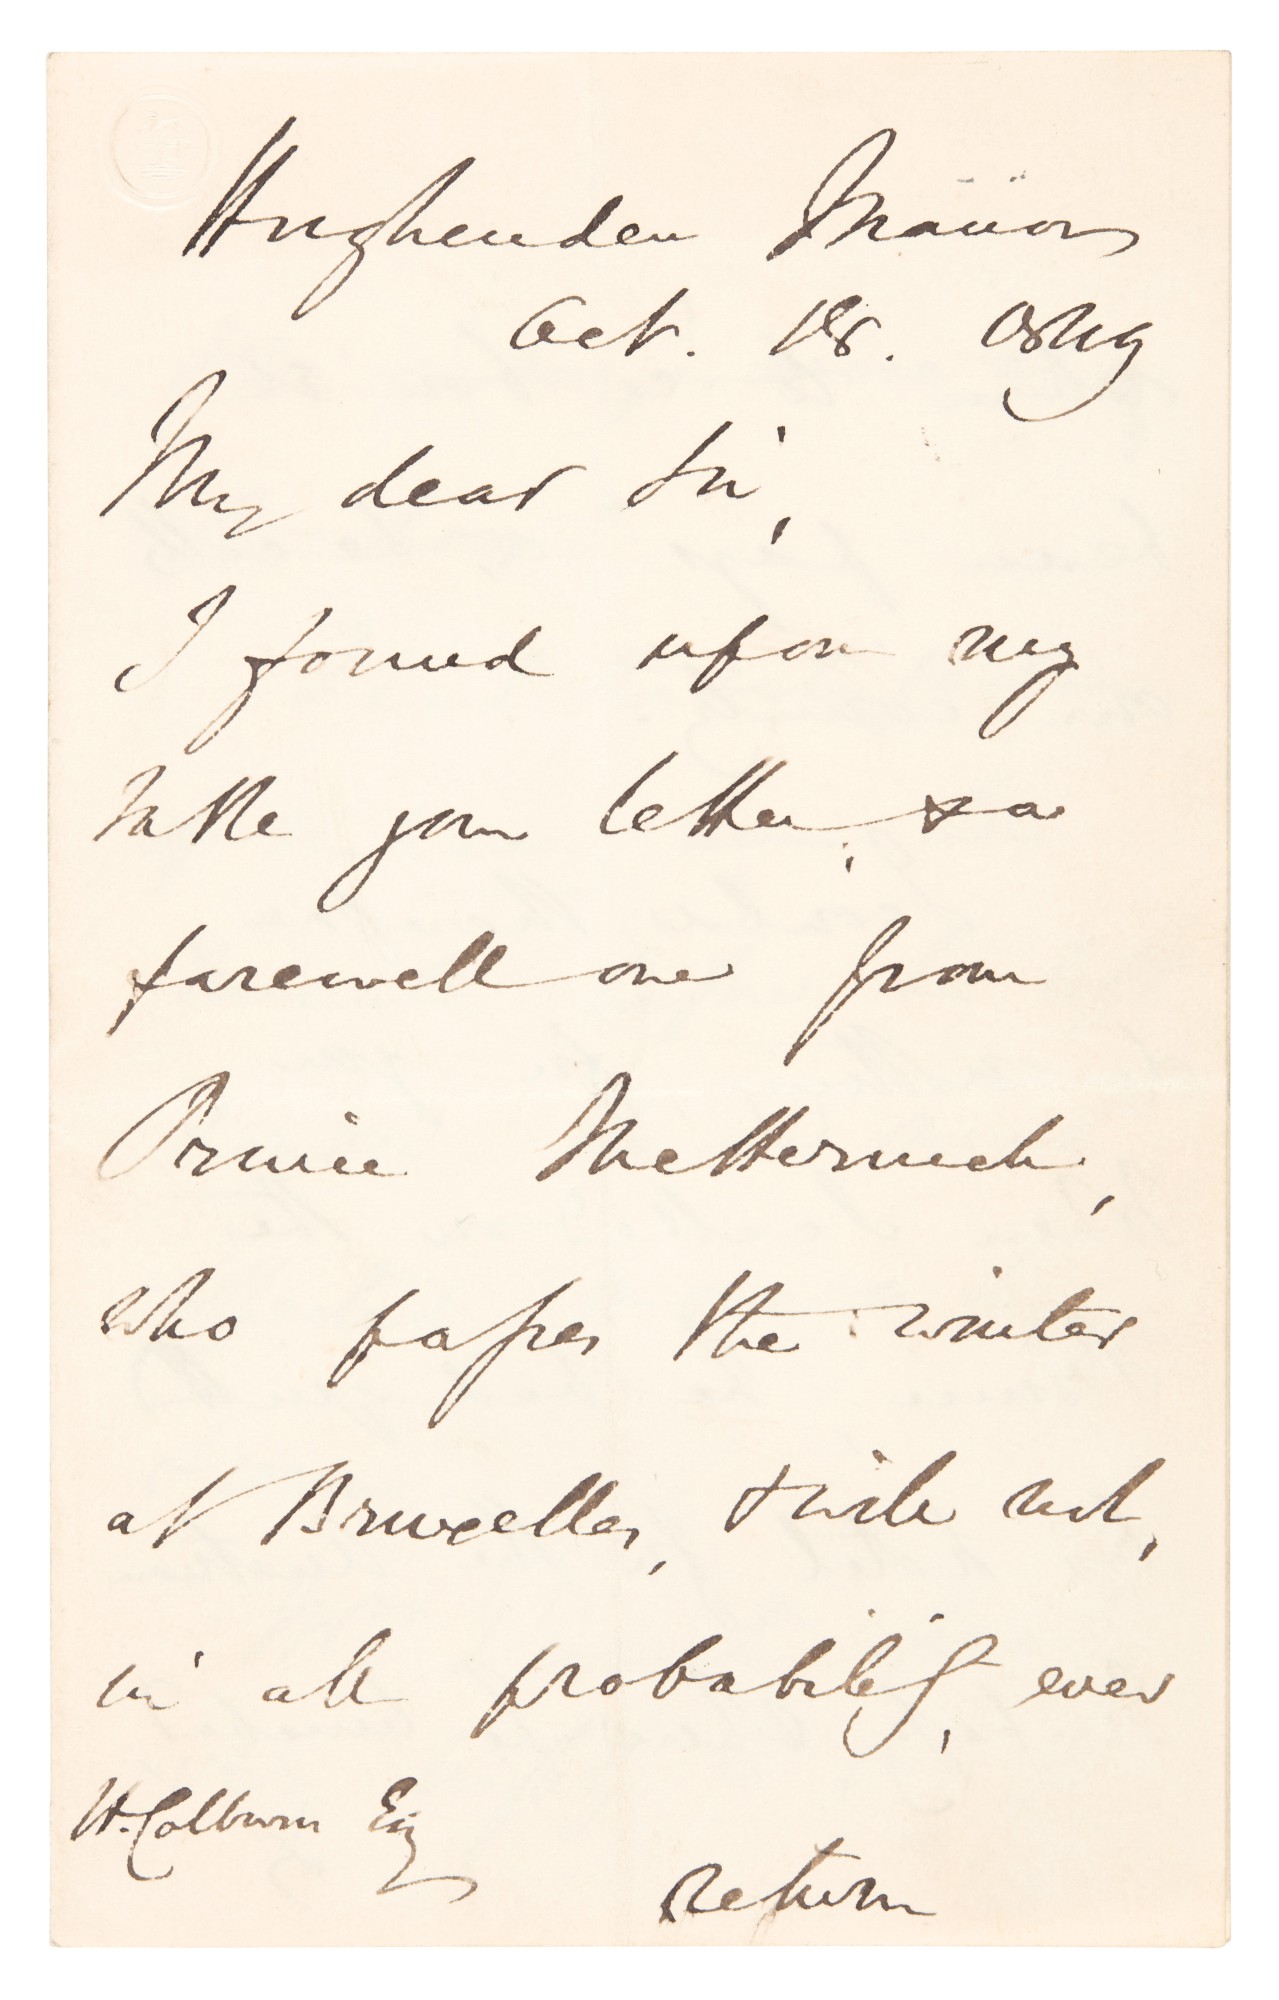 Hughenden Manor
Oct. 18. 1849
My dear Sir,
I found upon my
table your letter, & a
farewell one from
Prince Metternich,
who passes the winter
at Bruxelles, & will not,
in all probability, ever
H. Colburn Esq
return